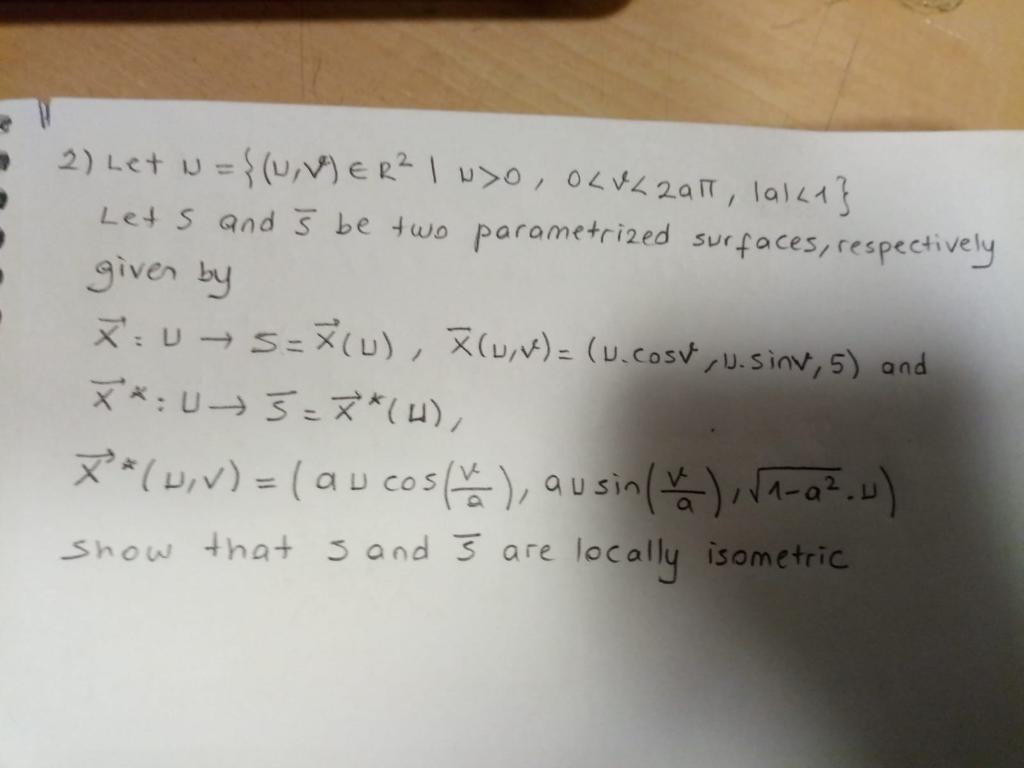 2) Let U = {(U,V) ∈ R² | U>0, 0<V<2aπ, |a|<1}
Let S and S̄ be two parametrized surfaces, respectively
given by
X⃗ : U → S = X⃗(U), X⃗(U,V) = (U.cosV, U.sinV, 5) and
X⃗* : U → S̄ = X⃗*(U),
X⃗*(U,V) = (a U cos(V/a), a U sin(V/a), √(1-a²).U)
show that S and S̄ are locally isometric